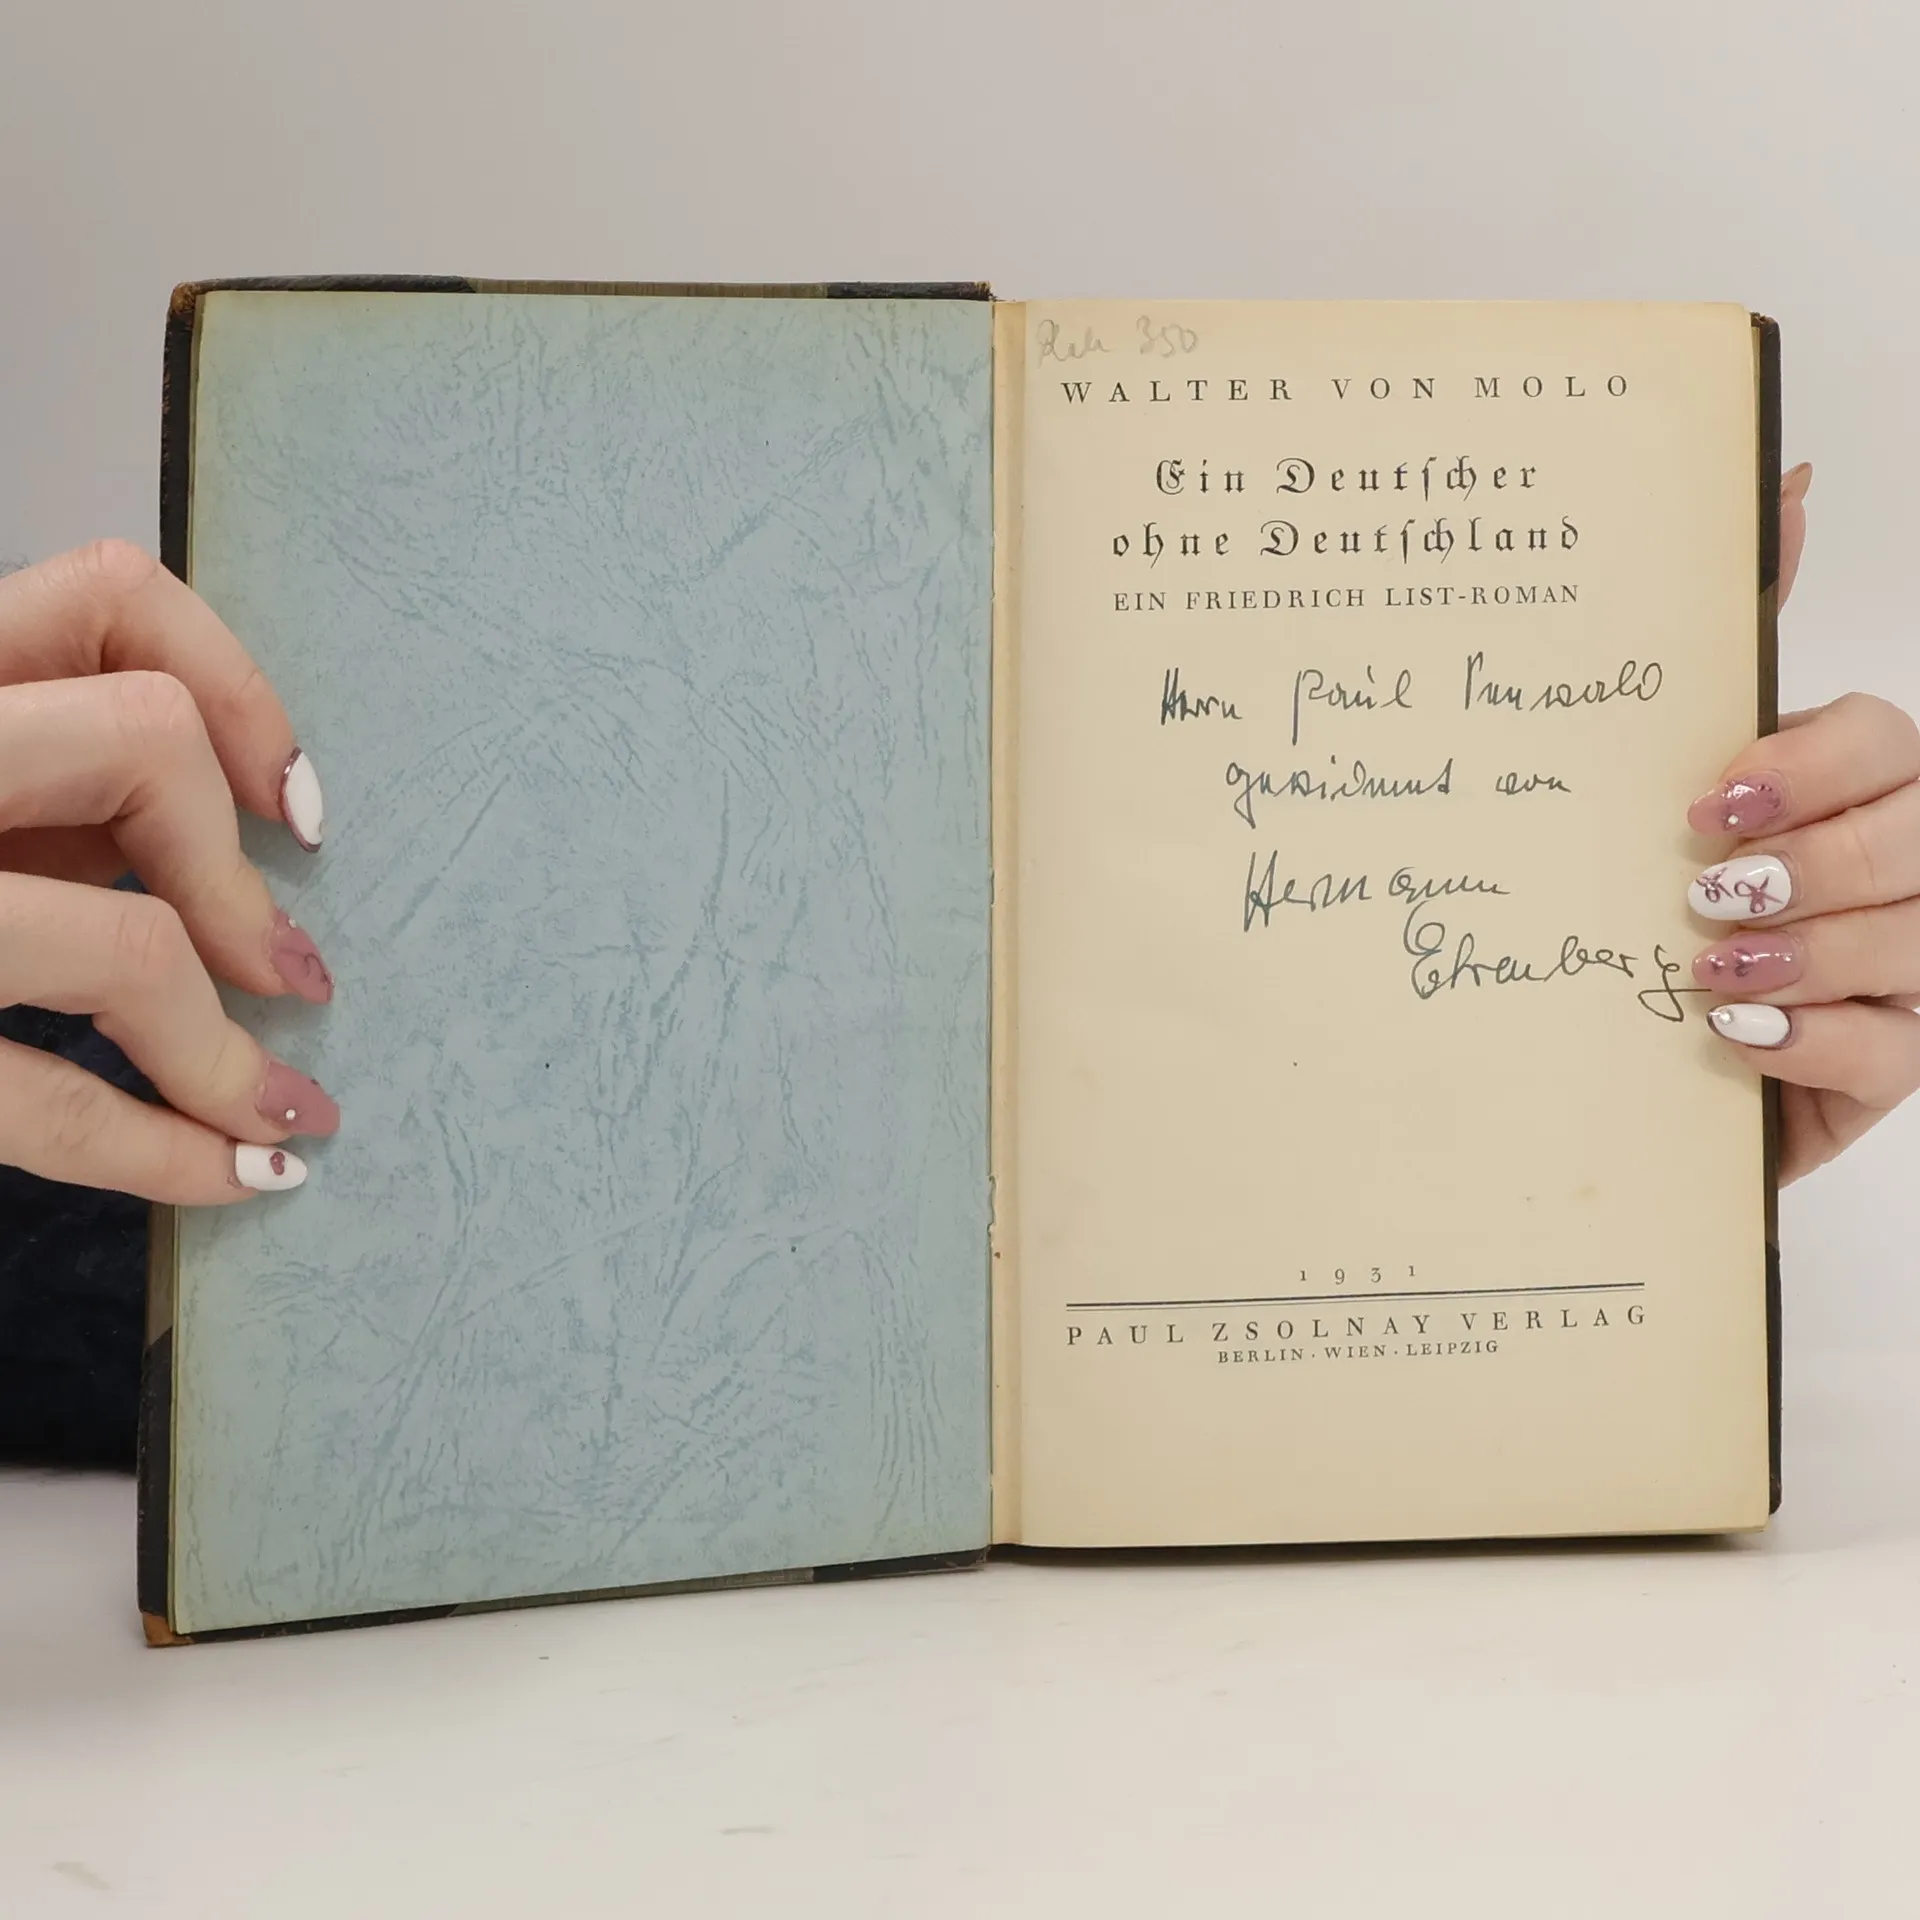 350
WALTER VON MOLO
Ein Deutscher
ohne Deutschland
EIN FRIEDRICH LIST-ROMAN
Herrn Paul
gewidmet von
Hermann
Ehrenberg
1931
PAUL ZSOLNAY VERLAG
BERLIN · WIEN · LEIPZIG